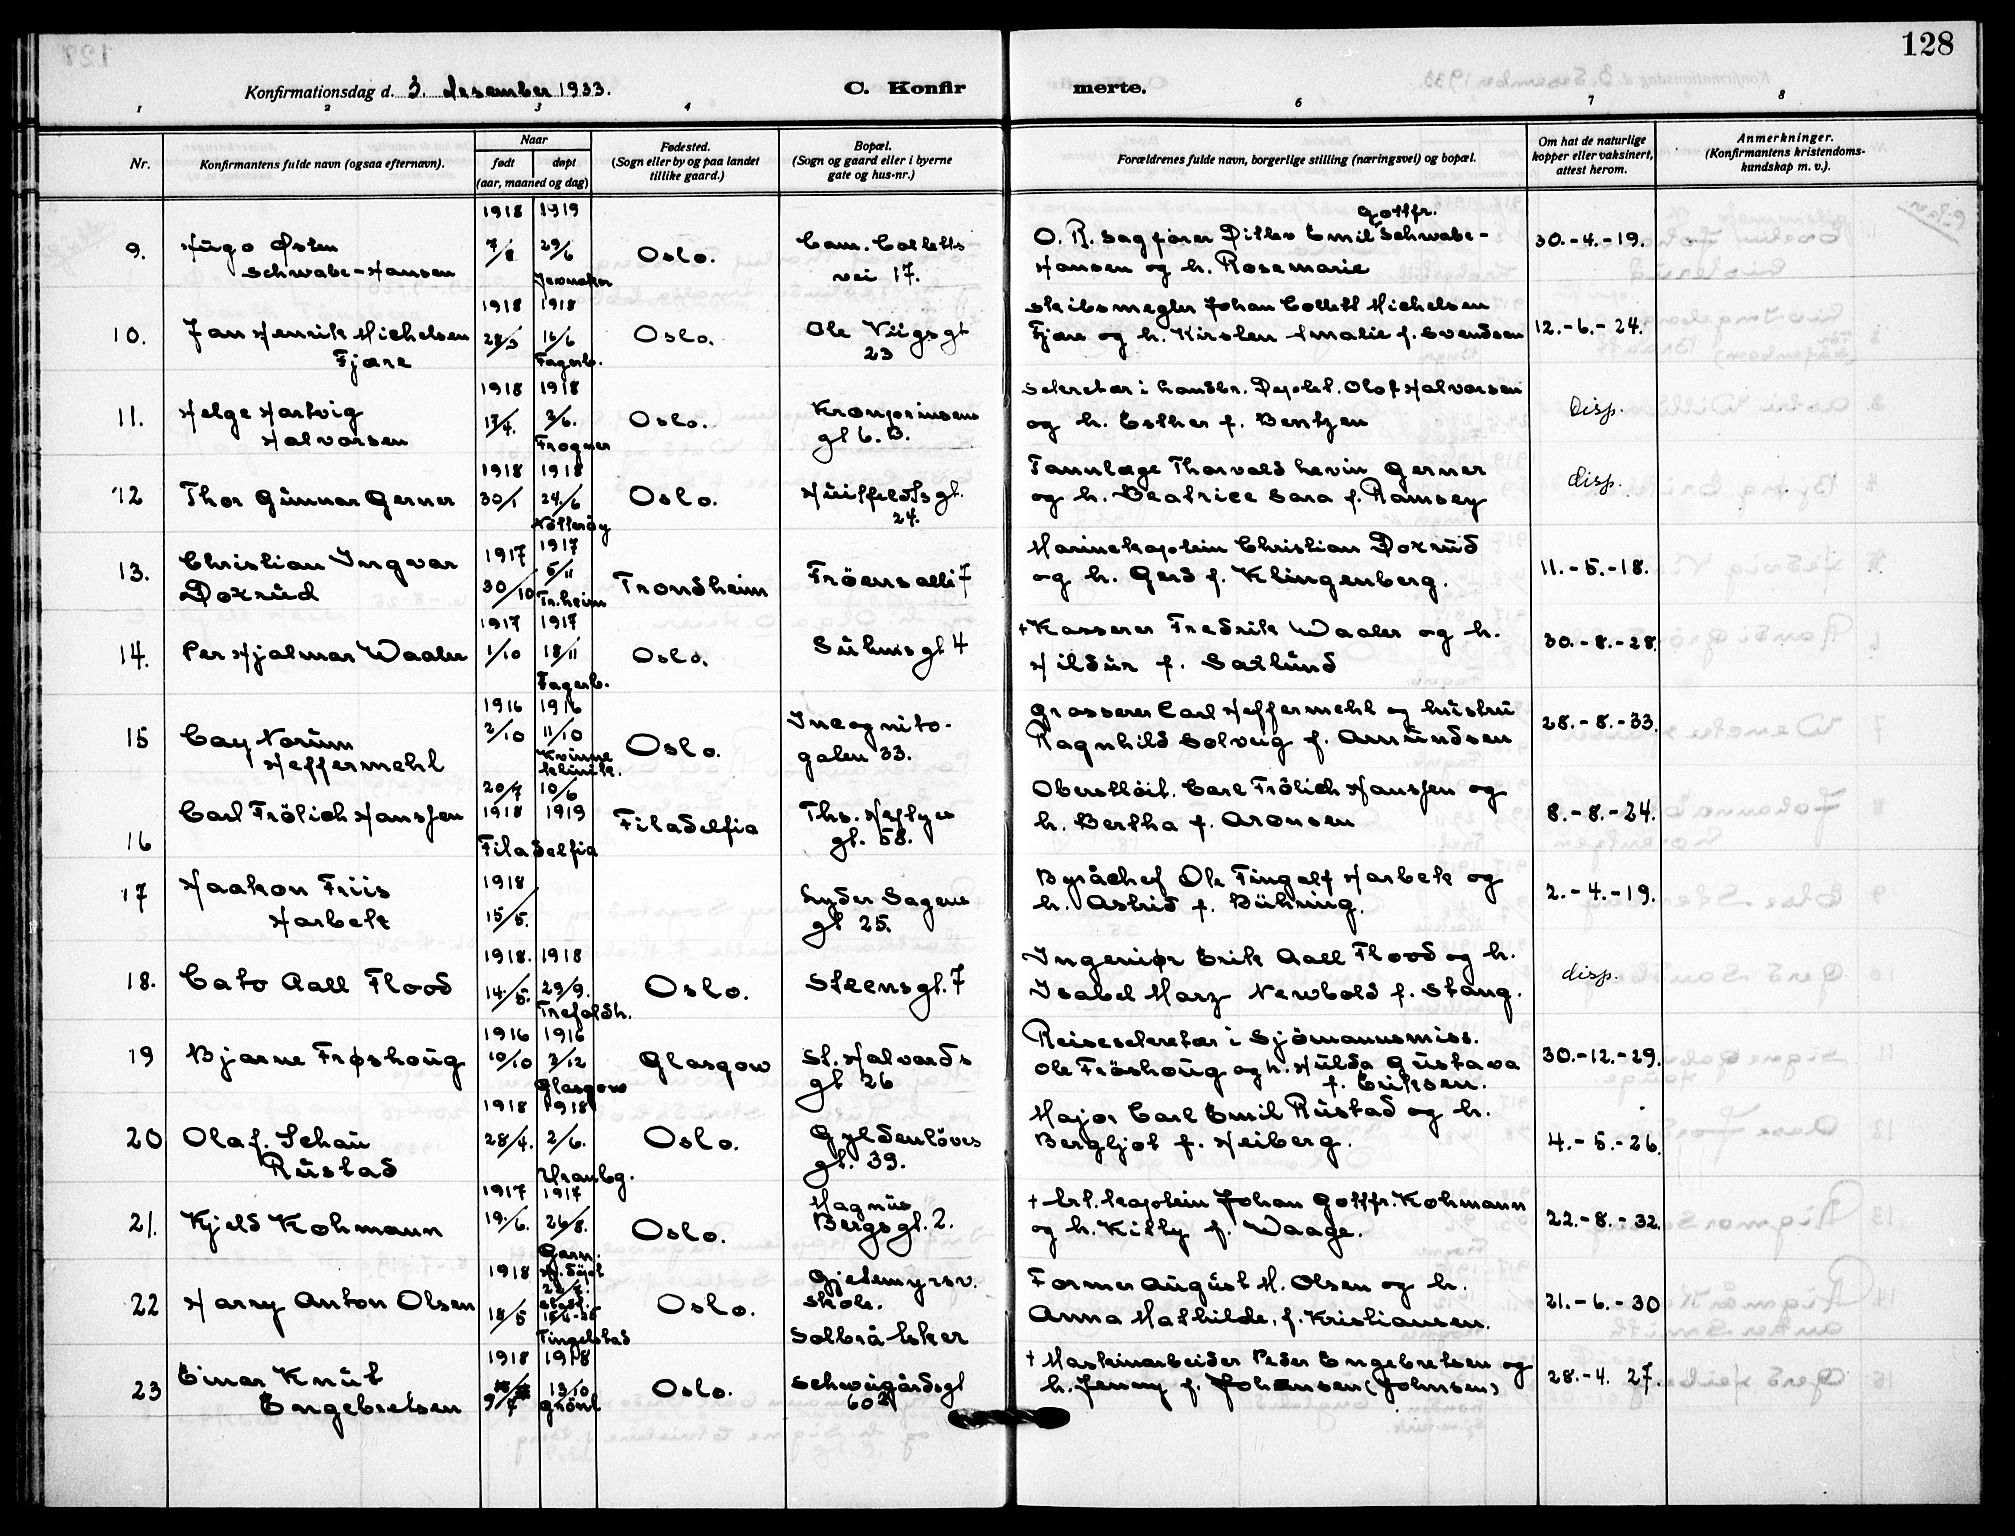 128
Konfirmationsdag d. 3. desember 1933.
C. Konfirmerte.
1 2 3 4 6 7 8
Nr.
Konfirmantens fulde navn (ogsaa efternavn).
Naar
født døpt
(aar, maaned og dag)
Fødested.
(Sogn eller by og paa landet
tillike gaard.)
Bopæl.
(Sogn og gaard eller i byerne
gate og hus-nr.)
Forældrenes fulde navn, borgerlige stilling (næringsvei) og bopæl.
Om hat de naturlige
kopper eller vaksinert,
attest herom.
Anmerkninger.
(Konfirmantens kristendoms-
kundskap m. v.).
9. Hugo Østen
Schwabe-Hansen
1918 7/8
1919 29/6 Jevnaker
Oslo.
Cam. Colletts
vei 17.
O. R. Sagfører Ditlev Emil Gottfr. Schwabe-
Hansen og h. Rosemarie
30.-4.-19.
10. Jan Henrik Michelsen
Fjære
1918 28/3
1918 16/6 Fagerb.
Oslo.
Ole Viigs gt
23
Skibsmegler Johan Collett Michelsen
Fjære og h. Kirsten Amalie f. Svendsen
12.-6.-24.
11. Helge Hartvig
Halvorsen
1918 17/4.
1918 2/6. Frogner
Oslo.
Kronprinsens
gt 6. B.
Sekretær i handbr. Deptet. Olof Halvorsen
og h. Esther f. Bentzen
Disp.
12 Thor Gunnar Gerner
1918 30/1
1918 24/6 Nötteröy
Oslo.
Huitfeldts gt.
24.
Tannlæge Thorvald Levin Gerner
og h. Beatrice Sara f. Ramsey
disp.
13. Christian Ingvar
Doxrud
1917 30/10
1917 5/11 Tr.heim
Trondheim
Fröens alle 7
Marinekaptein Christian Doxrud
og h. Gerd f. Klingenberg.
11.-5.-18.
14. Per Hjalmar Waaler
1917 1/10
1917 18/11 Fagerb.
Oslo.
Suhms gt 4
+ Kasserer Fredrik Waaler og h.
Hildur f. Saxlund
30.-8.-28.
15 Cay Norum
Heffermehl
1916 2/10
1916 11/10 Kvinne
klinik.
Oslo.
Incognito-
gaten 33.
Grosserer Carl Heffermehl og hustru
Ragnhild Solveig f. Amundsen
28.-8.-33.
16 Carl Frölich Hanssen
20/7 1918
10/6 1919
Filadelfia
Filadelfia
Ths. Heftyes
gt. 58.
Oberstlöit. Carl Frölich Hanssen og
h. Bertha f. Aronsen
8.-8.-24.
17 Haakon Friis
Harbek
1918 15/5.
Lyder Sagens
gt 25.
Byråchef Ole Tingulf Harbek og
h. Astrid f. Bühring.
2.-4.-19.
18. Cato Aall Flood
1918. 14./5.
1918 29/9. Trefoldh.
Oslo.
Steensgt. 7
Ingeniør Erik Aall Flood og h.
Isabel Marz Newbold f. Stang.
disp.
19 Bjarne Frøshoug
1916 10/10
1916 3/12 Glasgow
Glasgow
St. Halvards
gt 26
Reisesekretær i Sjömannsmiss.
Ole Fröshoug og h. Hulda Gustava
f. Eriksen.
30.-12.-29.
20 Olaf Schau
Rustad
1918 28/4.
1918 2/6. Uranbg.
Oslo.
Gyldenlöves
gt. 39.
Major Carl Emil Rustad og h.
Bergljot f. Heiberg.
4.-5.-26.
21. Kjeld Kohmann
1917 19./6.
1917 26/8. Garn.
Oslo.
Magnus
Bergs gt. 2.
+ Art. kaptein Johan Gottfr. Kohmann
og h. Kitty f. Waage.
22.-8.-32.
22 Harry Anton Olsen
1918 18/5
Hj. döpt
Tingelstad
Oslo.
Gjetemyrsv.
Skole.
Solbrå Asker
Former August M. Olsen og h.
Anna Mathilde, f. Kristiansen.
21.-6.-30
23 Einar Knut
Engebretsen
1918 9/7
1918 13/10 Grönl
Oslo.
Schweigårdsgt
60
+ Maskinarbeider Peder Engebretsen og
h. Jenny f. Johansen (Johnsen)
28.-4. 27.